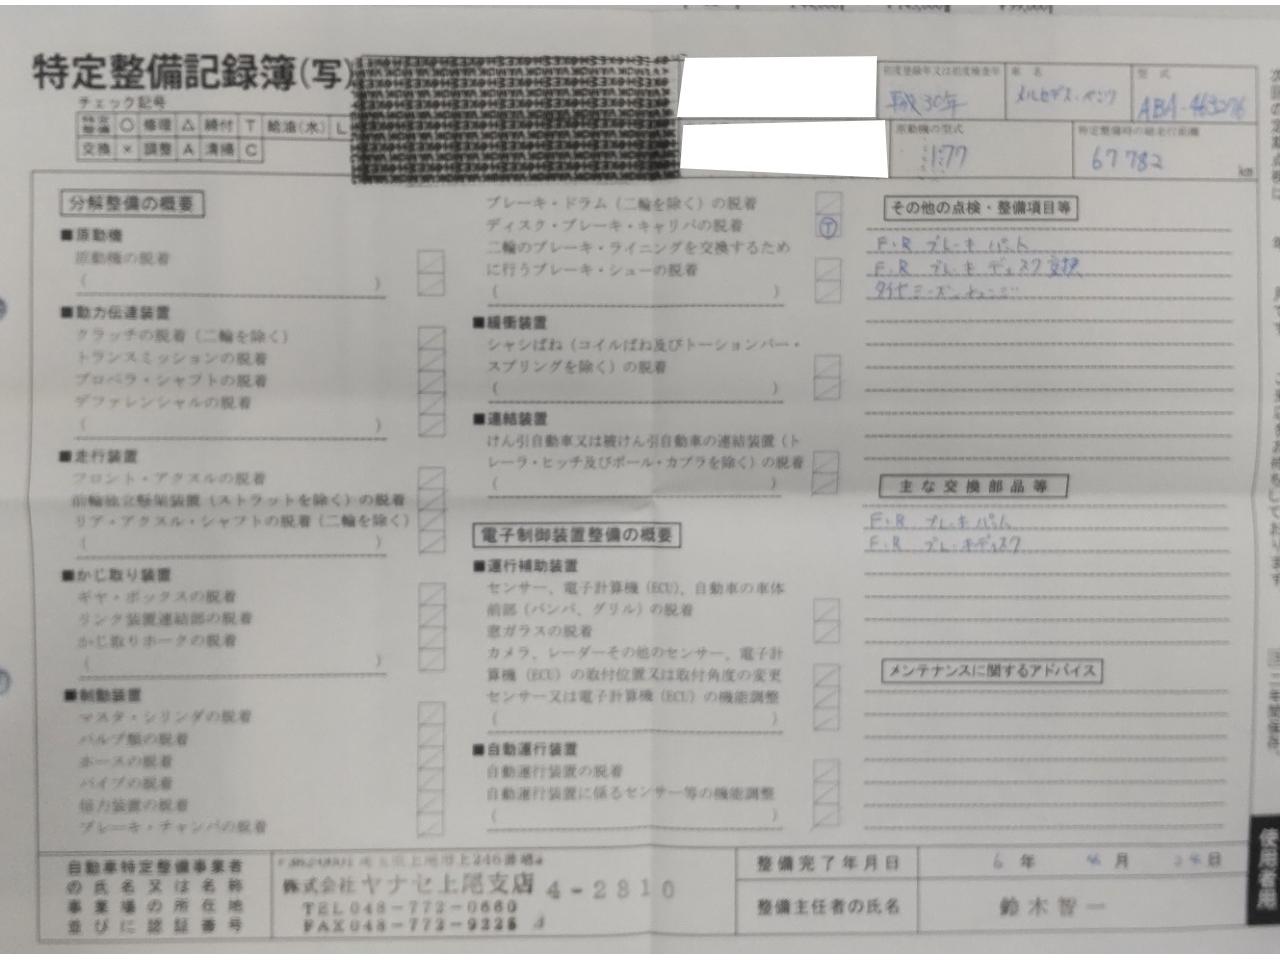 特定整備記録簿(写)
チェック記号
特定整備 ○ 修理 △ 締付 T 給油(水) L
交換 × 調整 A 清掃 C
初度登録年又は初度検査年
平成30年
車名
メルセデス・ベンツ
型式
ABA-463276
原動機の型式
177
特定整備時の総走行距離
67782 km
分解整備の概要
■原動機
原動機の脱着
( )
■動力伝達装置
クラッチの脱着(二輪を除く)
トランスミッションの脱着
プロペラ・シャフトの脱着
デファレンシャルの脱着
( )
■走行装置
フロント・アクスルの脱着
前輪独立懸架装置(ストラットを除く)の脱着
リア・アクスル・シャフトの脱着(二輪を除く)
( )
■かじ取り装置
ギヤ・ボックスの脱着
リンク装置連結部の脱着
かじ取りホークの脱着
( )
■制動装置
マスタ・シリンダの脱着
バルブ類の脱着
ホースの脱着
パイプの脱着
倍力装置の脱着
ブレーキ・チャンバの脱着
ブレーキ・ドラム(二輪を除く)の脱着
ディスク・ブレーキ・キャリパの脱着 Ⓣ
二輪のブレーキ・ライニングを交換するため
に行うブレーキ・シューの脱着
( )
■緩衝装置
シャシばね(コイルばね及びトーションバー・
スプリングを除く)の脱着
( )
■連結装置
けん引自動車又は被けん引自動車の連結装置(ト
レーラ・ヒッチ及びボール・カプラを除く)の脱着
( )
電子制御装置整備の概要
■運行補助装置
センサー、電子計算機(ECU)、自動車の車体
前部(バンパ、グリル)の脱着
窓ガラスの脱着
カメラ、レーダーその他のセンサー、電子計
算機(ECU)の取付位置又は取付角度の変更
センサー又は電子計算機(ECU)の機能調整
( )
■自動運行装置
自動運行装置の脱着
自動運行装置に係るセンサー等の機能調整
( )
その他の点検・整備項目等
F・R ブレーキパット
F・R ブレーキディスク交換
タイヤシーズンチェンジ
主な交換部品等
F・R ブレーキパット
F・R ブレーキディスク
メンテナンスに関するアドバイス
使用者用
自動車特定整備事業者
の氏名又は名称
事業場の所在地
並びに認証番号
株式会社ヤナセ上尾支店 4-2810
TEL 048-772-0660
FAX 048-772-9225
整備完了年月日
6年 4月 24日
整備主任者の氏名
鈴木智一